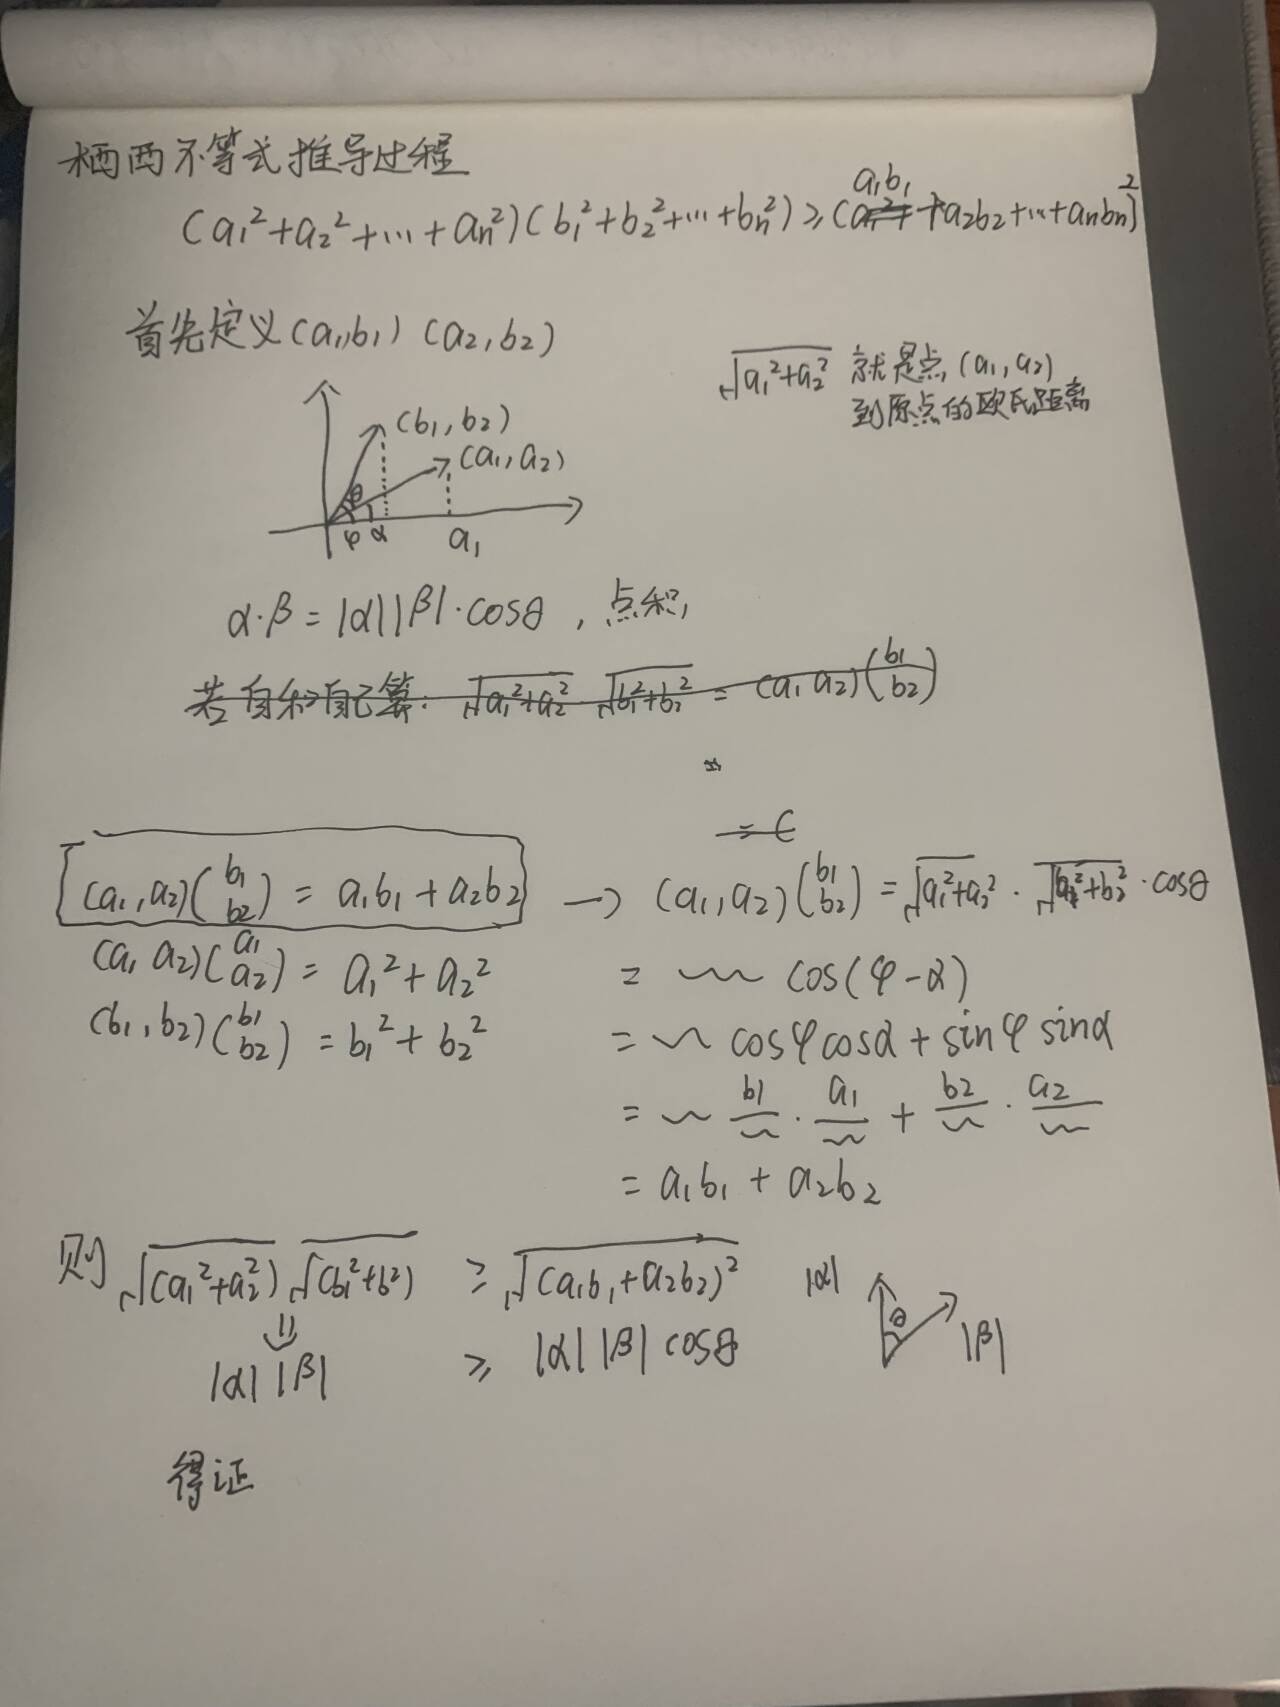 柄西不等式推导过程
(a₁²+a₂²+…+aₙ²)(b₁²+b₂²+…+bₙ²)≥(a₁b₁+a₂b₂+…+aₙbₙ)²
首先定义(a₁,b₁) (a₂,b₂)
√(a₁²+a₂²) 就是点(a₁,a₂)
到原点的欧氏距离
(b₁,b₂)
(a₁,a₂)
θ
φ α a₁
α·β=|α||β|·cosθ,点积,
若自和自己算: √(a₁²+a₂²) √(b₁²+b₂²) = (a₁ a₂)(b₁ b₂)
(a₁,a₂)(b₁ b₂) = a₁b₁+a₂b₂ → (a₁,a₂)(b₁ b₂) = √(a₁²+a₂²)·√(b₁²+b₂²)·cosθ
(a₁ a₂)(a₁ a₂) = a₁²+a₂²
= ~ cos(φ-α)
(b₁,b₂)(b₁ b₂) = b₁²+b₂²
= ~ cosφcosα+sinφsinα
= ~ b₁/~ · a₁/~ + b₂/~ · a₂/~
= a₁b₁+a₂b₂
则 √(a₁²+a₂²) √(b₁²+b²) ≥ √(a₁b₁+a₂b₂)²
|α| θ |β|
|α||β| ≥ |α||β|cosθ
得证